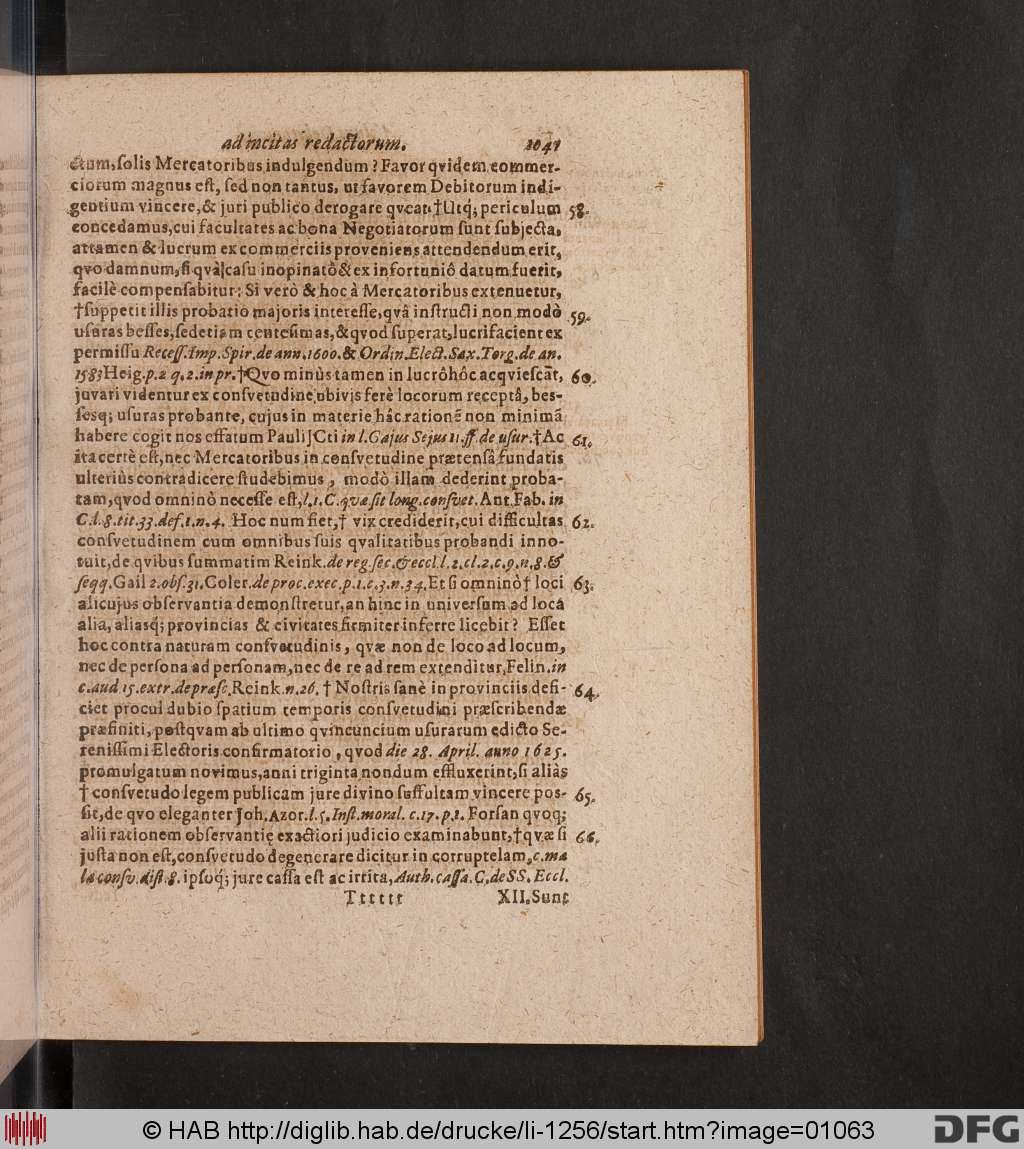 ad incitas redactorum. 2041
ctum, solis Mercatoribus indulgendum? Favor qvidem commer-
ciorum magnus est, sed non tantus, ut favorem Debitorum indi-
gentium vincere, & juri publico derogare qveat. †Utq; periculum 58.
concedamus, cui facultates ac bona Negotiatorum sunt subjecta,
attamen & lucrum ex commerciis proveniens attendendum erit,
qvo damnum, si qvà casu inopinatô & ex infortuniô datum fuerit,
facilè compensabitur: Si verò & hoc à Mercatoribus extenuetur,
†suppetit illis probatio majoris interesse, qvâ instructi non modò 59.
usuras besses, sed etiam centesimas, & qvod superat, lucrifacient ex
permissu Recess. Imp. Spir. de ann. 1600. & Ordin. Elect. Sax. Torg. de an.
1583 Heig. p. 2 q. 2. in pr. †Qvo minùs tamen in lucrô hôc acqviescãt, 60.
juvari videntur ex consvetudine, ubivis ferè locorum receptâ, bes-
sesq; usuras probante, cujus in materie hâc rationẽ non minimã
habere cogit nos effatum Pauli JCti in l. Gajus Sejus 11. ff. de usur. †Ac 61.
ita certè est, nec Mercatoribus in consvetudine prætensâ fundatis
ulteriùs contradicere studebimus, modò illam dederint proba-
tam, qvod omninò necesse est, l. 1. C. qvæ sit long. consvet. Ant. Fab. in
C. l. 8. tit. 33. def. 1. n. 4. Hoc num fiet, † vix crediderit, cui difficultas 62.
consvetudinem cum omnibus suis qvalitatibus probandi inno-
tuit, de qvibus summatim Reink. de reg. sec. & eccl. l. 2. cl. 2. c. 9. n. 8. &
seqq. Gail 2. obs. 31. Coler. de proc. exec. p. 1. c. 3. n. 34. Et si omninò † loci 63.
alicujus observantia demonstretur, an hinc in universum ad loca
alia, aliasq; provincias & civitates firmiter inferre licebit? Esset
hoc contra naturam consvetudinis, qvæ non de loco ad locum,
nec de persona ad personam, nec de re ad rem extenditur, Felin. in
c. aud 15. extr. de præsc. Reink. n. 26. † Nostris sanè in provinciis defi- 64.
ciet procul dubio spatium temporis consvetudini præscribendæ
præfiniti, postqvam ab ultimo qvincuncium usurarum edicto Se-
renissimi Electoris confirmatorio, qvod die 28. April. anno 1625.
promulgatum novimus, anni triginta nondum effluxerint, si aliàs
† consvetudo legem publicam jure divino suffultam vincere pos- 65.
sit, de qvo eleganter Joh. Azor. l. 5. Inst. moral. c. 17. p. 1. Forsan qvoq;
alii rationem observantię exactiori judicio examinabunt, † qvæ si 66.
justa non est, consvetudo degenerare dicitur in corruptelam, c. ma
la consv. dist. 8. ipsoq; jure cassa est ac irrita, Auth. cassa. C. de SS. Eccl.
Ttttt XII. Sunt
© HAB http://diglib.hab.de/drucke/li-1256/start.htm?image=01063
DFG